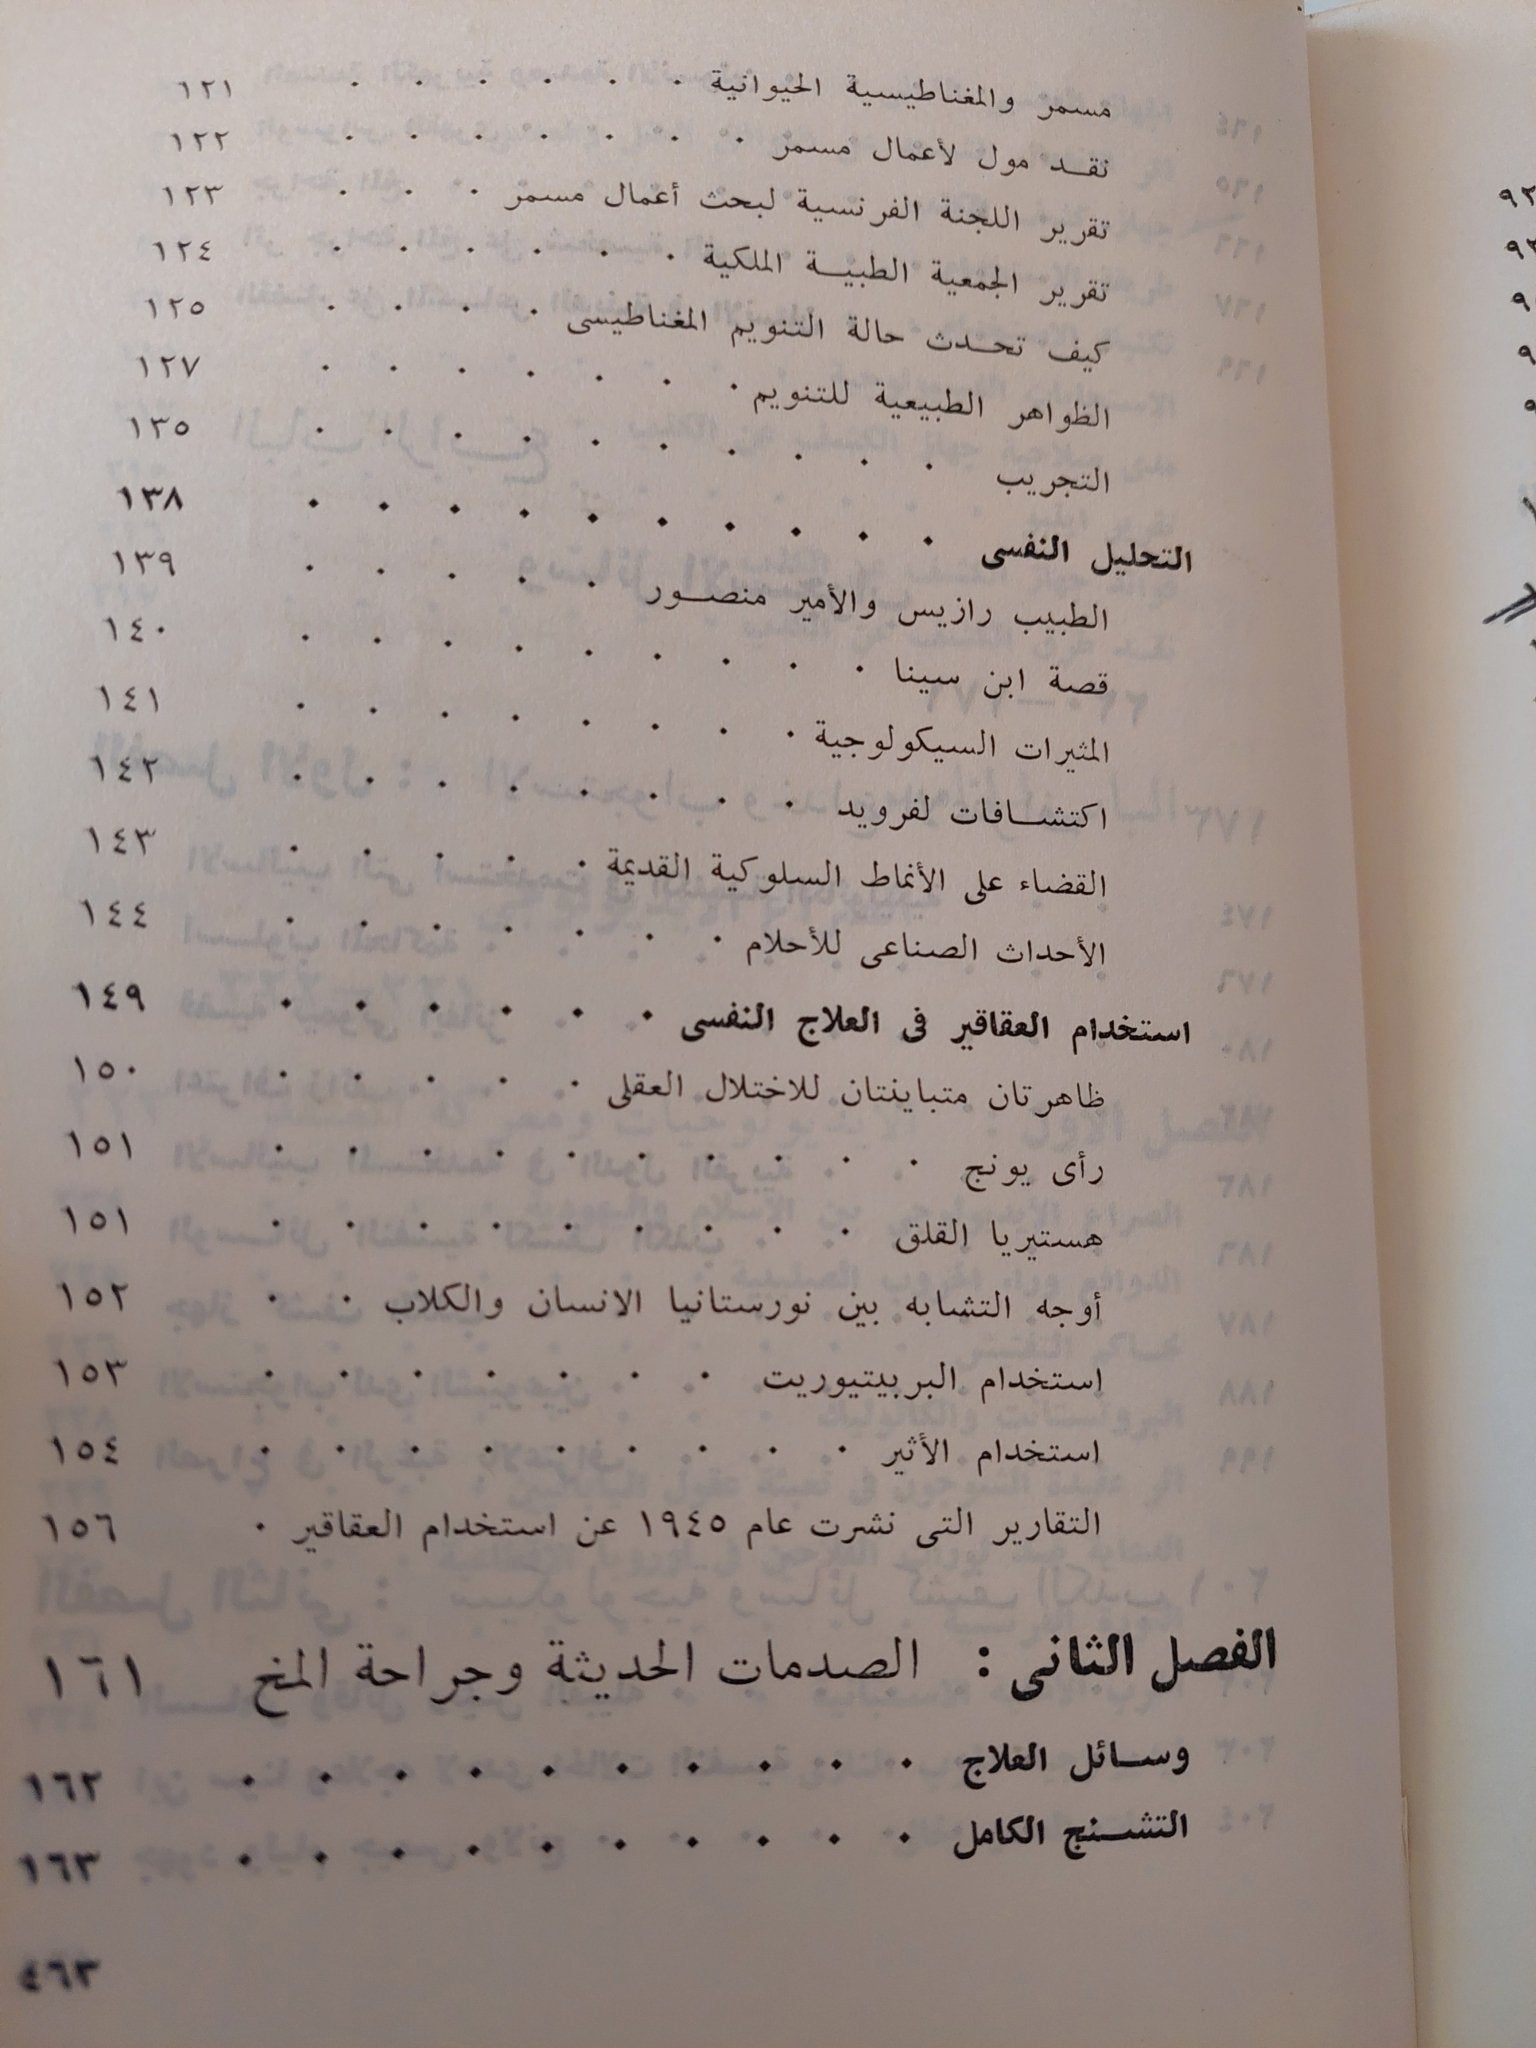 مسمر والمغناطيسية الحيوانية . . . . . . ١٢١
نقـد مول لأعمال مسمر . . . . . . . ١٢٢
تقرير اللجنة الفرنسية لبحث أعمال مسمر . . . ١٢٣
تقرير الجمعية الطبيـة الملكية . . . . . . ١٢٤
كيف تحـدث حالة التنويم المغناطيسى . . . . ١٢٥
الظواهر الطبيعية للتنويم . . . . . . . ١٢٧
التجريب . . . . . . . . . . ١٣٥
التحليل النفسى . . . . . . . . . . ١٣٨
الطبيب رازيس والأمير منصـور . . . . . ١٣٩
قصة ابن سينا . . . . . . . . . ١٤٠
المثيرات السيكولوجية . . . . . . . . ١٤١
اكتشـافات لفرويد . . . . . . . . ١٤٢
القضاء على الأنماط السلوكية القديمة . . . . . ١٤٣
الأحداث الصناعى للأحلام . . . . . . . ١٤٤
استخدام العقاقير فى العلاج النفسى . . . . . . ١٤٩
ظاهرتان متباينتان للاختلال العقلى . . . . . ١٥٠
رأى يونج . . . . . . . . . . ١٥١
هستيريا القلق . . . . . . . . . ١٥١
أوجه التشابه بين نورستانيا الانسان والكلاب . . ١٥٢
استخدام البربيتيوريت . . . . . . . ١٥٣
استخدام الأثير . . . . . . . . . ١٥٤
التقارير التى نشرت عام ١٩٤٥ عن استخدام العقاقير . ١٥٦
الفصل الثانى : الصدمات الحديثة وجراحة المخ ١٦١
وسـائل العلاج . . . . . . . . . . ١٦٢
التشـنج الكامل . . . . . . . . . . ١٦٣
٤٦٣